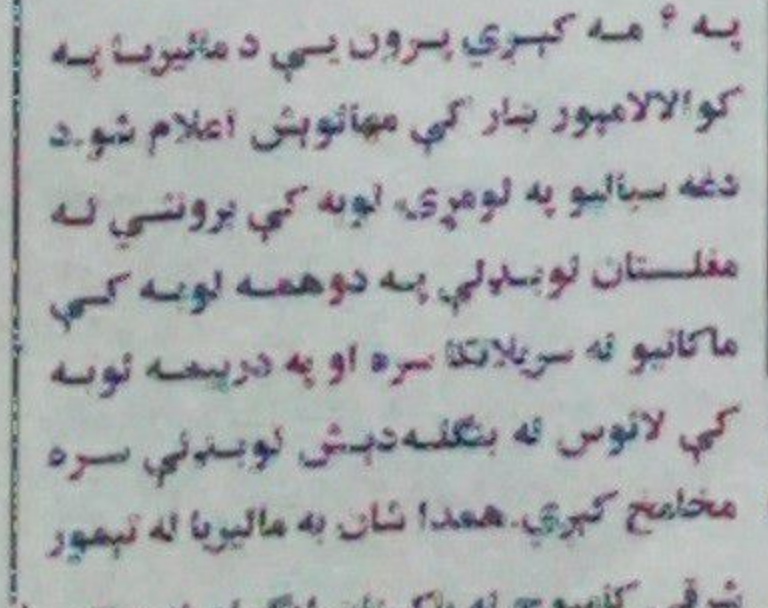 په ۶ مه کیږي پرون یې د مالیزیا په
کوالالامپور ښار کې مهالوېش اعلام شو.د
دغه سیالیو په لومړۍ لوبه کې برونئي له
مغلستان لوبډلې په دوهمه لوبه کې
ماکائیو له سریلانکا سره او په دریمه لوبه
کې لائوس له بنګله‌دېش لوبډلې سره
مخامخ کیږي.همدا شان به مالیزیا له تیمور
شرقي کمبوج له پاکستان